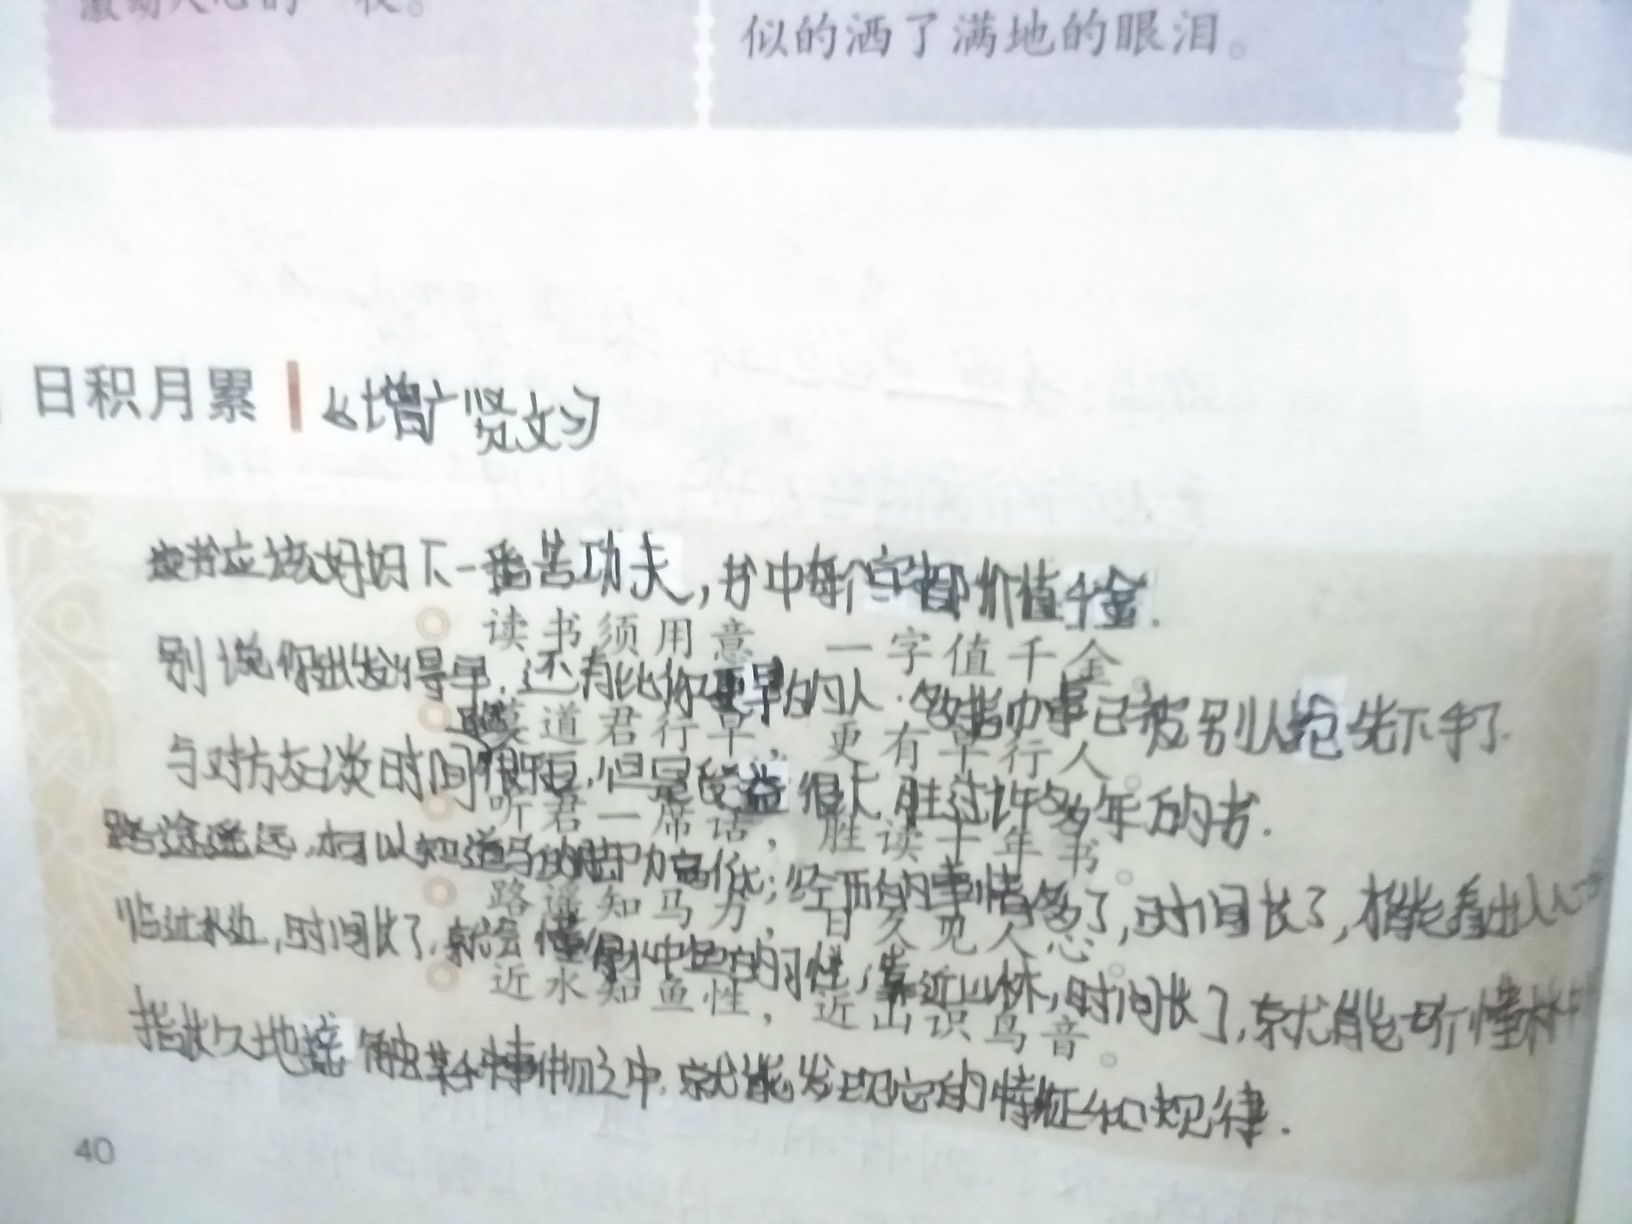 似的洒了满地的眼泪。
日积月累 《增广贤文》
读书应该好好下一番苦功夫，书中每个字都价值千金.
读书须用意，一字值千金。
别说你出发得早，还有比你更早的人.多指巾事已被别人抢先下手了.
莫道君行早，更有早行人。
与对方交谈时间很短，但是受益很大，胜过许多年的书.
听君一席话，胜读十年书。
路途遥远，才可以知道马的脚力高低；经历的事情多了，时间长了，才能看出人心
路遥知马力，日久见人心。
临近水边，时间长了，就会懂得水中鱼的习性，靠近山林，时间长了，就能听懂林中
近水知鱼性，近山识鸟音。
指长久地接触某种事物之中，就能发现它的特征和规律.
40